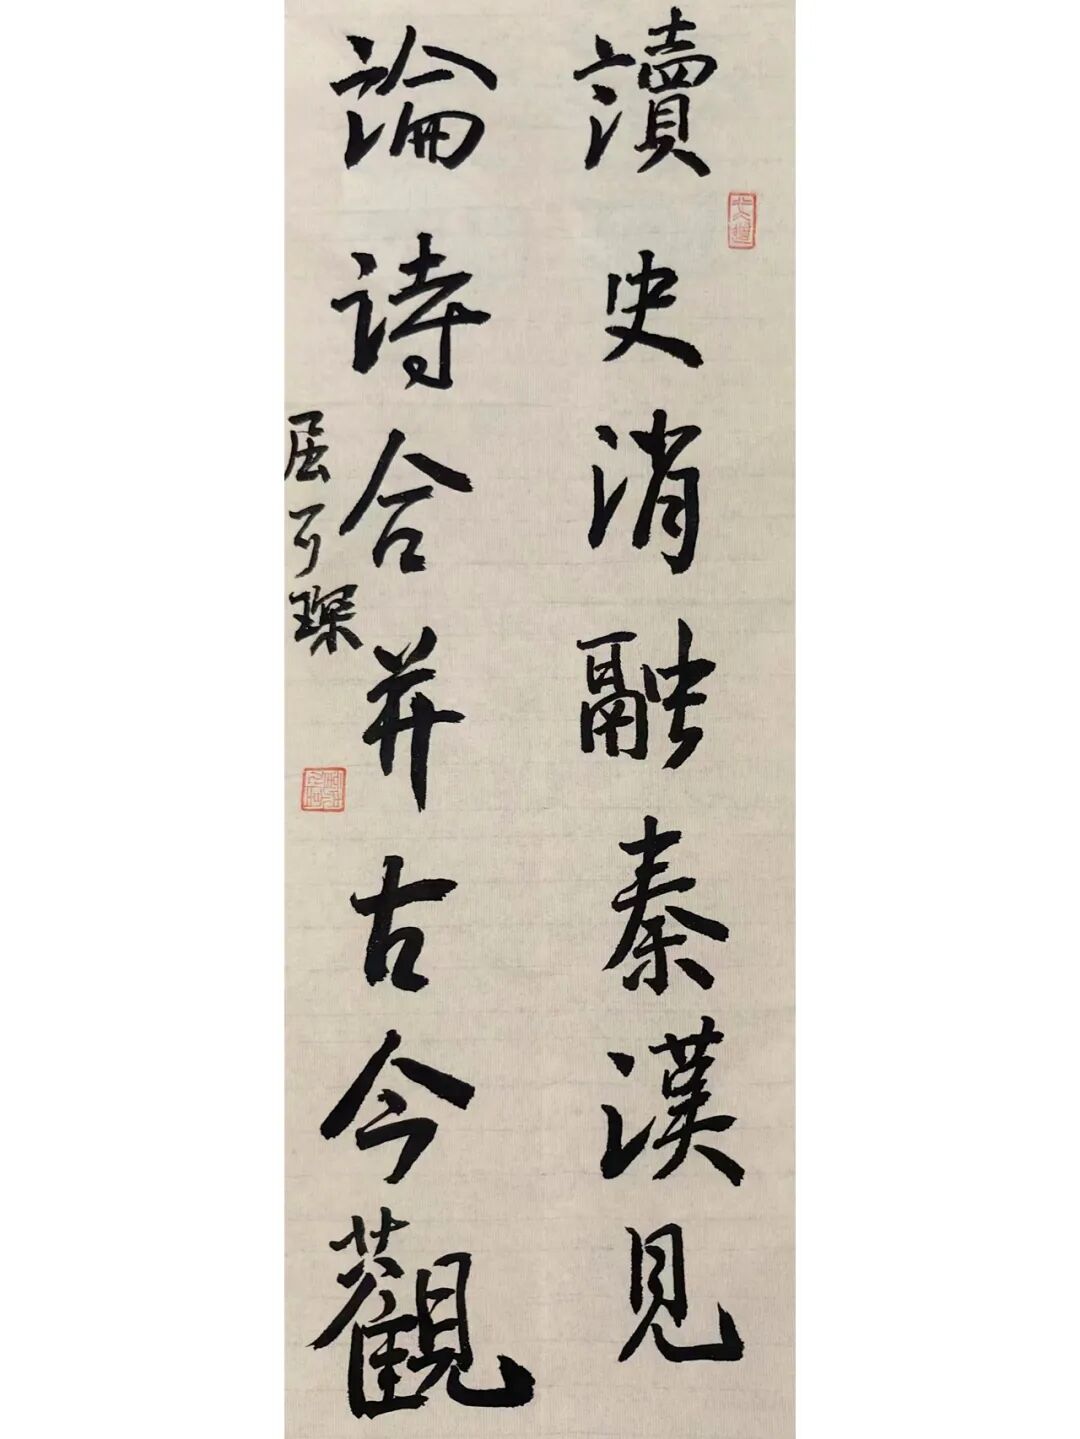 讀史消融秦漢見
論詩合并古今觀
屈可琛